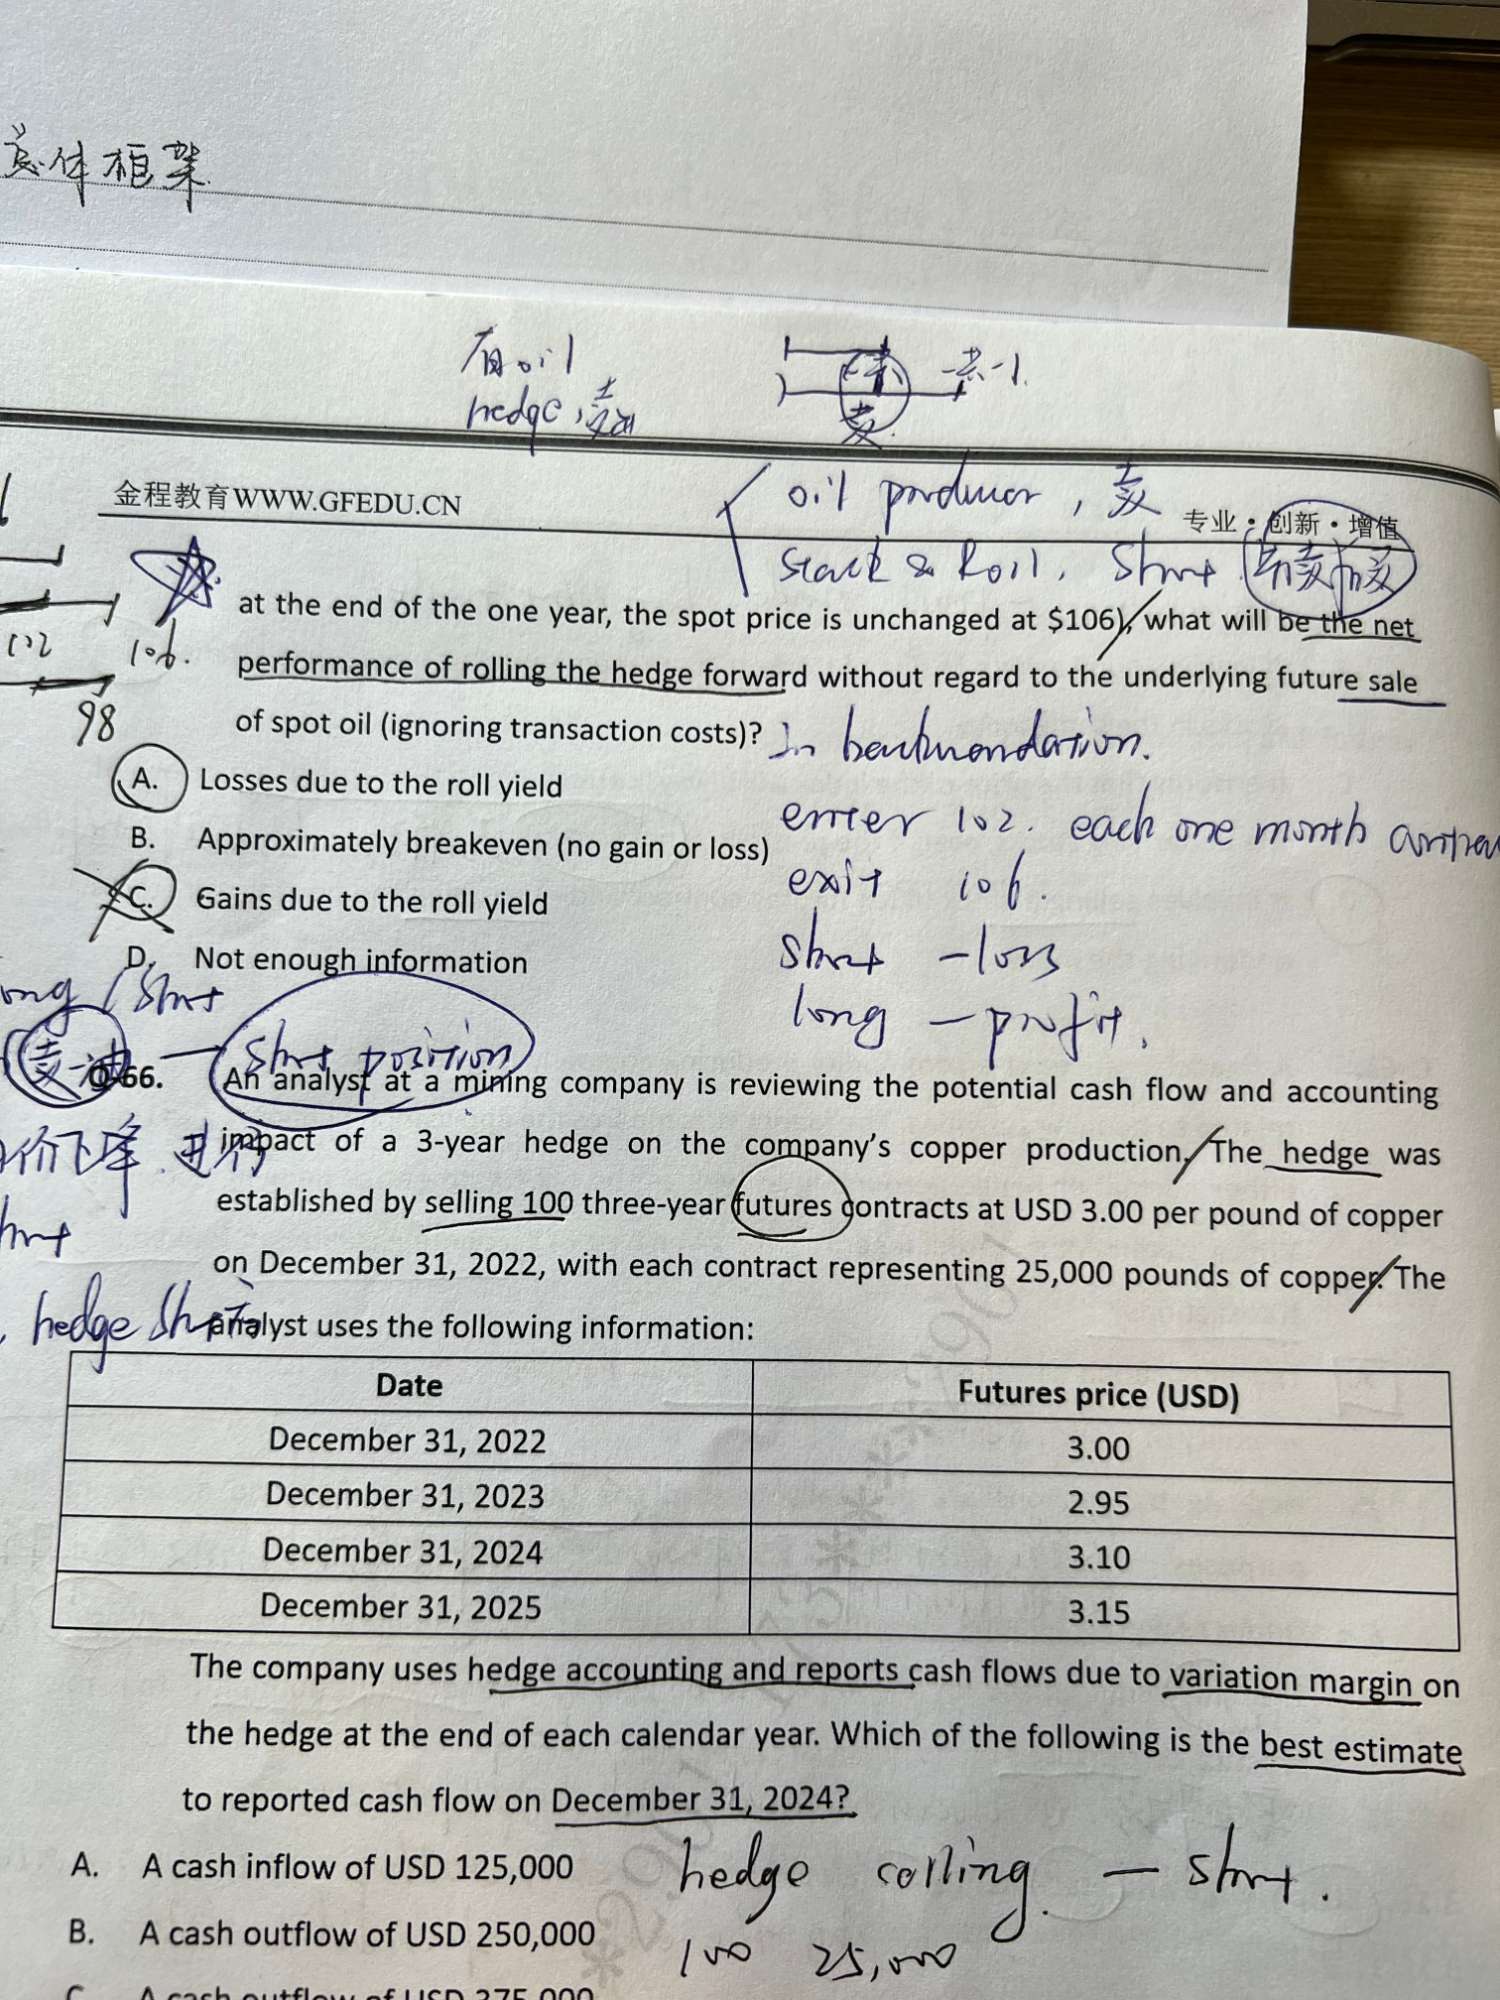 总体框架
有oil
hedge,
金程教育WWW.GFEDU.CN
专业·创新·增值
oil producer, 卖
Stack & Roll. Short
at the end of the one year, the spot price is unchanged at $106), what will be the net
102
106.
performance of rolling the hedge forward without regard to the underlying future sale
98
of spot oil (ignoring transaction costs)?
In backwardation.
A. Losses due to the roll yield
enter 102. each one month
B. Approximately breakeven (no gain or loss)
exit 106.
C. Gains due to the roll yield
short - loss
D. Not enough information
long - profit.
short
short position
Q-66. An analyst at a mining company is reviewing the potential cash flow and accounting
价下降 进行
impact of a 3-year hedge on the company's copper production. The hedge was
established by selling 100 three-year futures contracts at USD 3.00 per pound of copper
on December 31, 2022, with each contract representing 25,000 pounds of copper. The
hedge
analyst uses the following information:
Date Futures price (USD)
December 31, 2022 3.00
December 31, 2023 2.95
December 31, 2024 3.10
December 31, 2025 3.15
The company uses hedge accounting and reports cash flows due to variation margin on
the hedge at the end of each calendar year. Which of the following is the best estimate
to reported cash flow on December 31, 2024?
A. A cash inflow of USD 125,000
hedge - short.
B. A cash outflow of USD 250,000
100 25,000
C. A cash outflow of USD 375,000